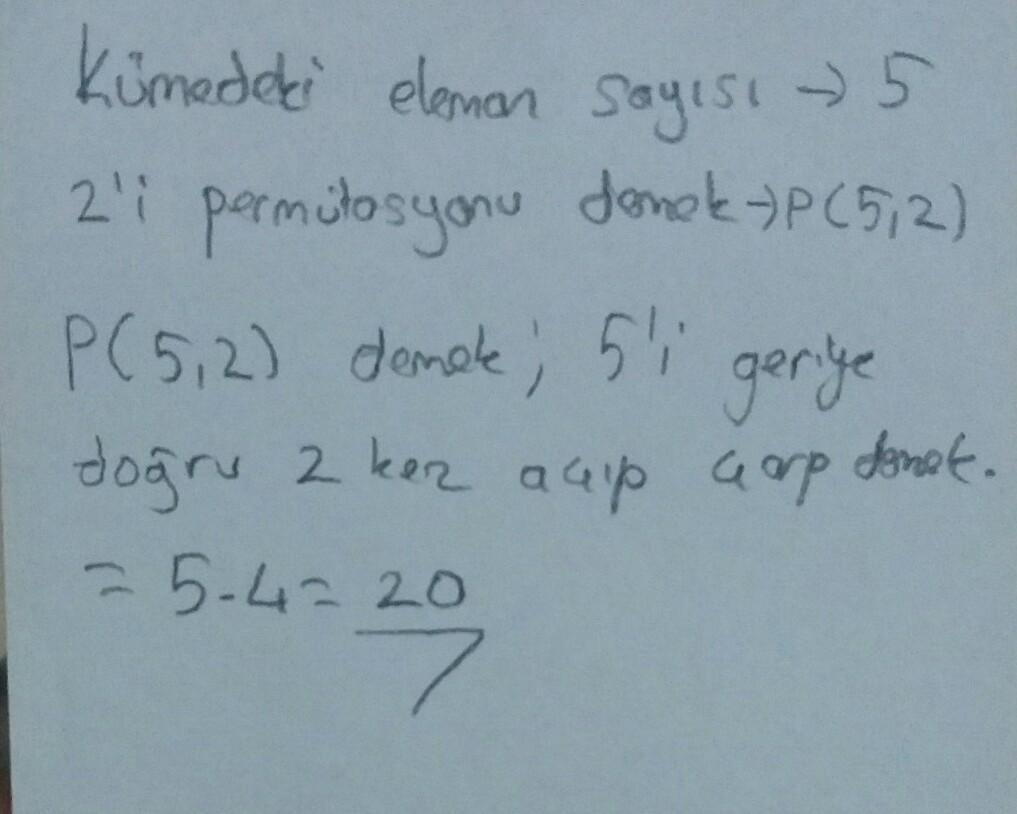 Kümedeki eleman sayısı → 5
2'i permütasyonu demek → P(5,2)
P(5,2) demek; 5'i geriye
doğru 2 kez açıp çarp demek.
= 5.4 = 20